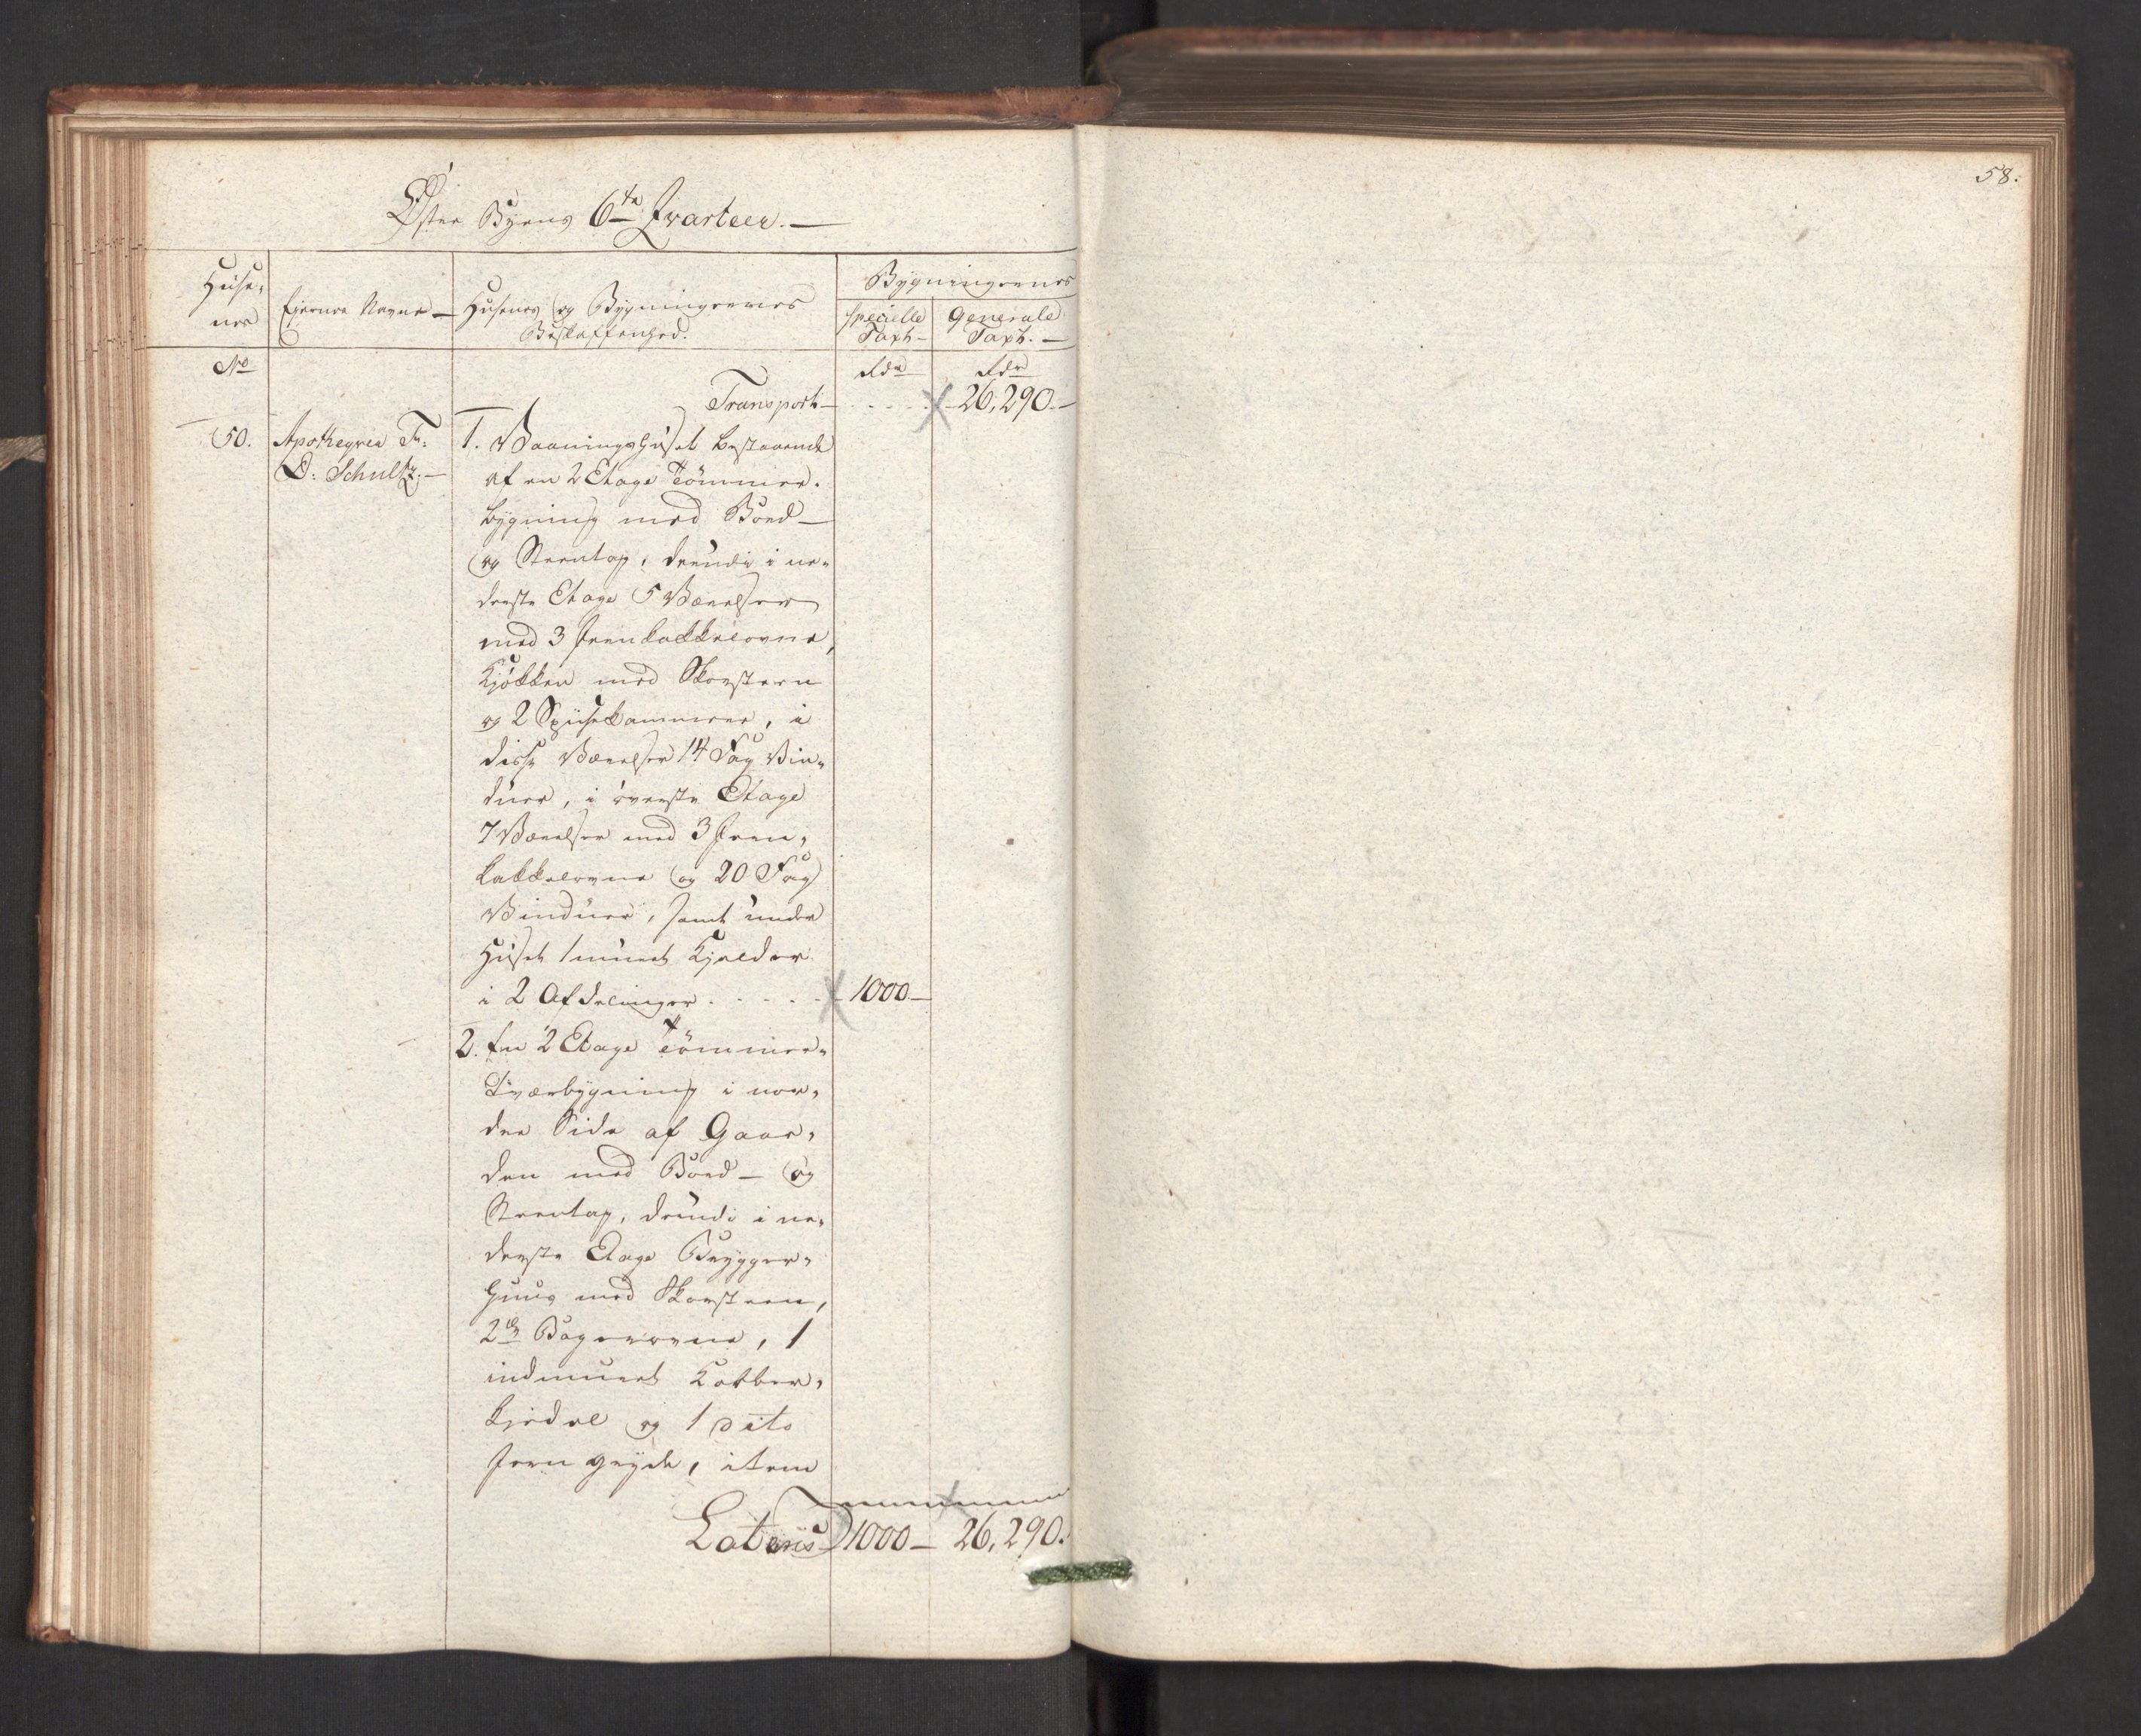 58.
Øster Byens 6te Qvarteer. —
Huse-
nes
Ejernes Navne —
Husenes og Bygningernes
Beskaffenhed.
Bygningernes
specielle
Taxt —
Generale
Taxt. —
No
Rdr
Rdr
Transport — . . . . 26,290. —
50. Apotheqver Fr:
D: Schultz. —
1. Vaaningshuset bestaaende
af en 2 Etage Tømmer-
bygning med Bord —
og Steentag, deeudi i ne-
derste Etage 5 Værelser
med 3 Jernkakkelovne,
Kjøkken med Skorsteen
og 2 Spiisekammere, i
disse Værelser 14 Fag Vin-
duer, i øverste Etage
7 Værelser med 3 Jern-
kakkelovne og 20 Fag
Vinduer, samt under
Huset 1 muret Kjelder
i 2 Afdelinger . . . . . 1000. —
2. En 2 Etage Tømmer-
Tværbygning i nor-
dre Side af Gaar-
den med Bord — og
Steentag, deeudi i ne-
derste Etage Brygger-
huus med Skorsteen,
2de Bagerovne, 1
indmuret Kobber-
kjedel og 1 dito
Jern gryde, item
Lateris 1000 — 26,290.